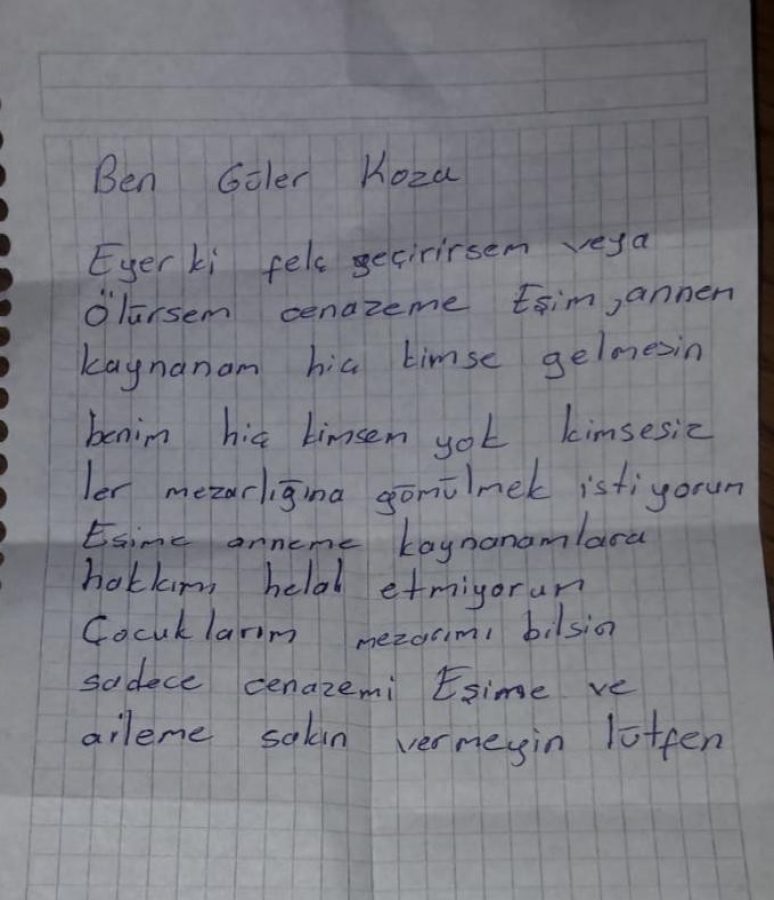 Ben Güler Koza
Eyer ki felç geçirirsem veya
Ölürsem cenazeme Eşim, annem
kaynanam hiç kimse gelmesin
benim hiç kimsem yok kimsesiz
ler mezarlığına gömülmek istiyorum
Eşime anneme kaynanamlara
hakkımı helal etmiyorum
Çocuklarım mezarımı bilsin
sadece cenazemi Eşime ve
aileme sakın vermeyin lütfen